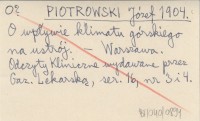 02 PIOTROWSKI Józef 1904.
O wpływie klimatu górskiego
na ustrój. – Warszawa.
Odczyty Kliniczne wydawane przez
Gaz. Lekarską, ser. 16, nr. 3 i 4.